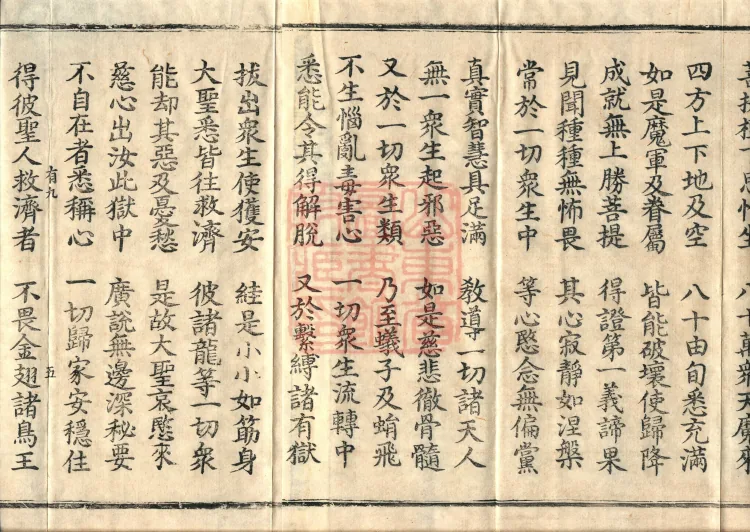 四方上下地及空　八十由旬悉充滿
如是魔軍及眷屬　皆能破壞使歸降
成就無上勝菩提　得證第一義諦果
見聞種種無怖畏　其心寂靜如涅槃
常於一切衆生中　等心愍念無偏黨
真實智慧具足滿　教導一切諸天人
無一衆生起邪惡　如是慈悲徹骨髓
又於一切衆生類　乃至蟻子及蜎飛
不生惱亂毒害心　一切衆生流轉中
悉能令其得解脫　又於繫縛諸有獄
拔出衆生使獲安　絓是小小如筋身
大聖悉皆往救濟　彼諸龍等一切衆
能却其惡及憂愁　是故大聖哀愍來
慈心出汝此獄中　廣說無邊深秘要
不自在者悉稱心　一切歸家安穩住
有九　五
得彼聖人救濟者　不畏金翅諸鳥王